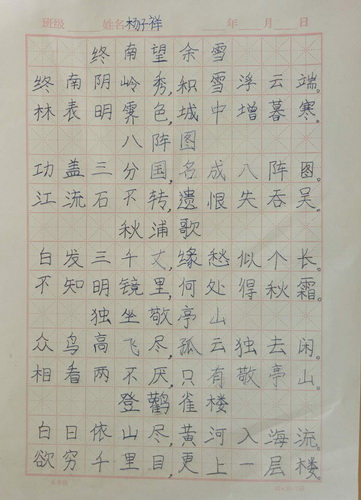 班级 姓名 杨子祥 年 月 日
终南望余雪
终南阴岭秀,积雪浮云端。
林表明霁色,城中增暮寒。
八阵图
功盖三分国,名成八阵图。
江流石不转,遗恨失吞吴。
秋浦歌
白发三千丈,缘愁似个长。
不知明镜里,何处得秋霜。
独坐敬亭山
众鸟高飞尽,孤云独去闲。
相看两不厌,只有敬亭山。
登鹳雀楼
白日依山尽,黄河入海流。
欲穷千里目,更上一层楼。